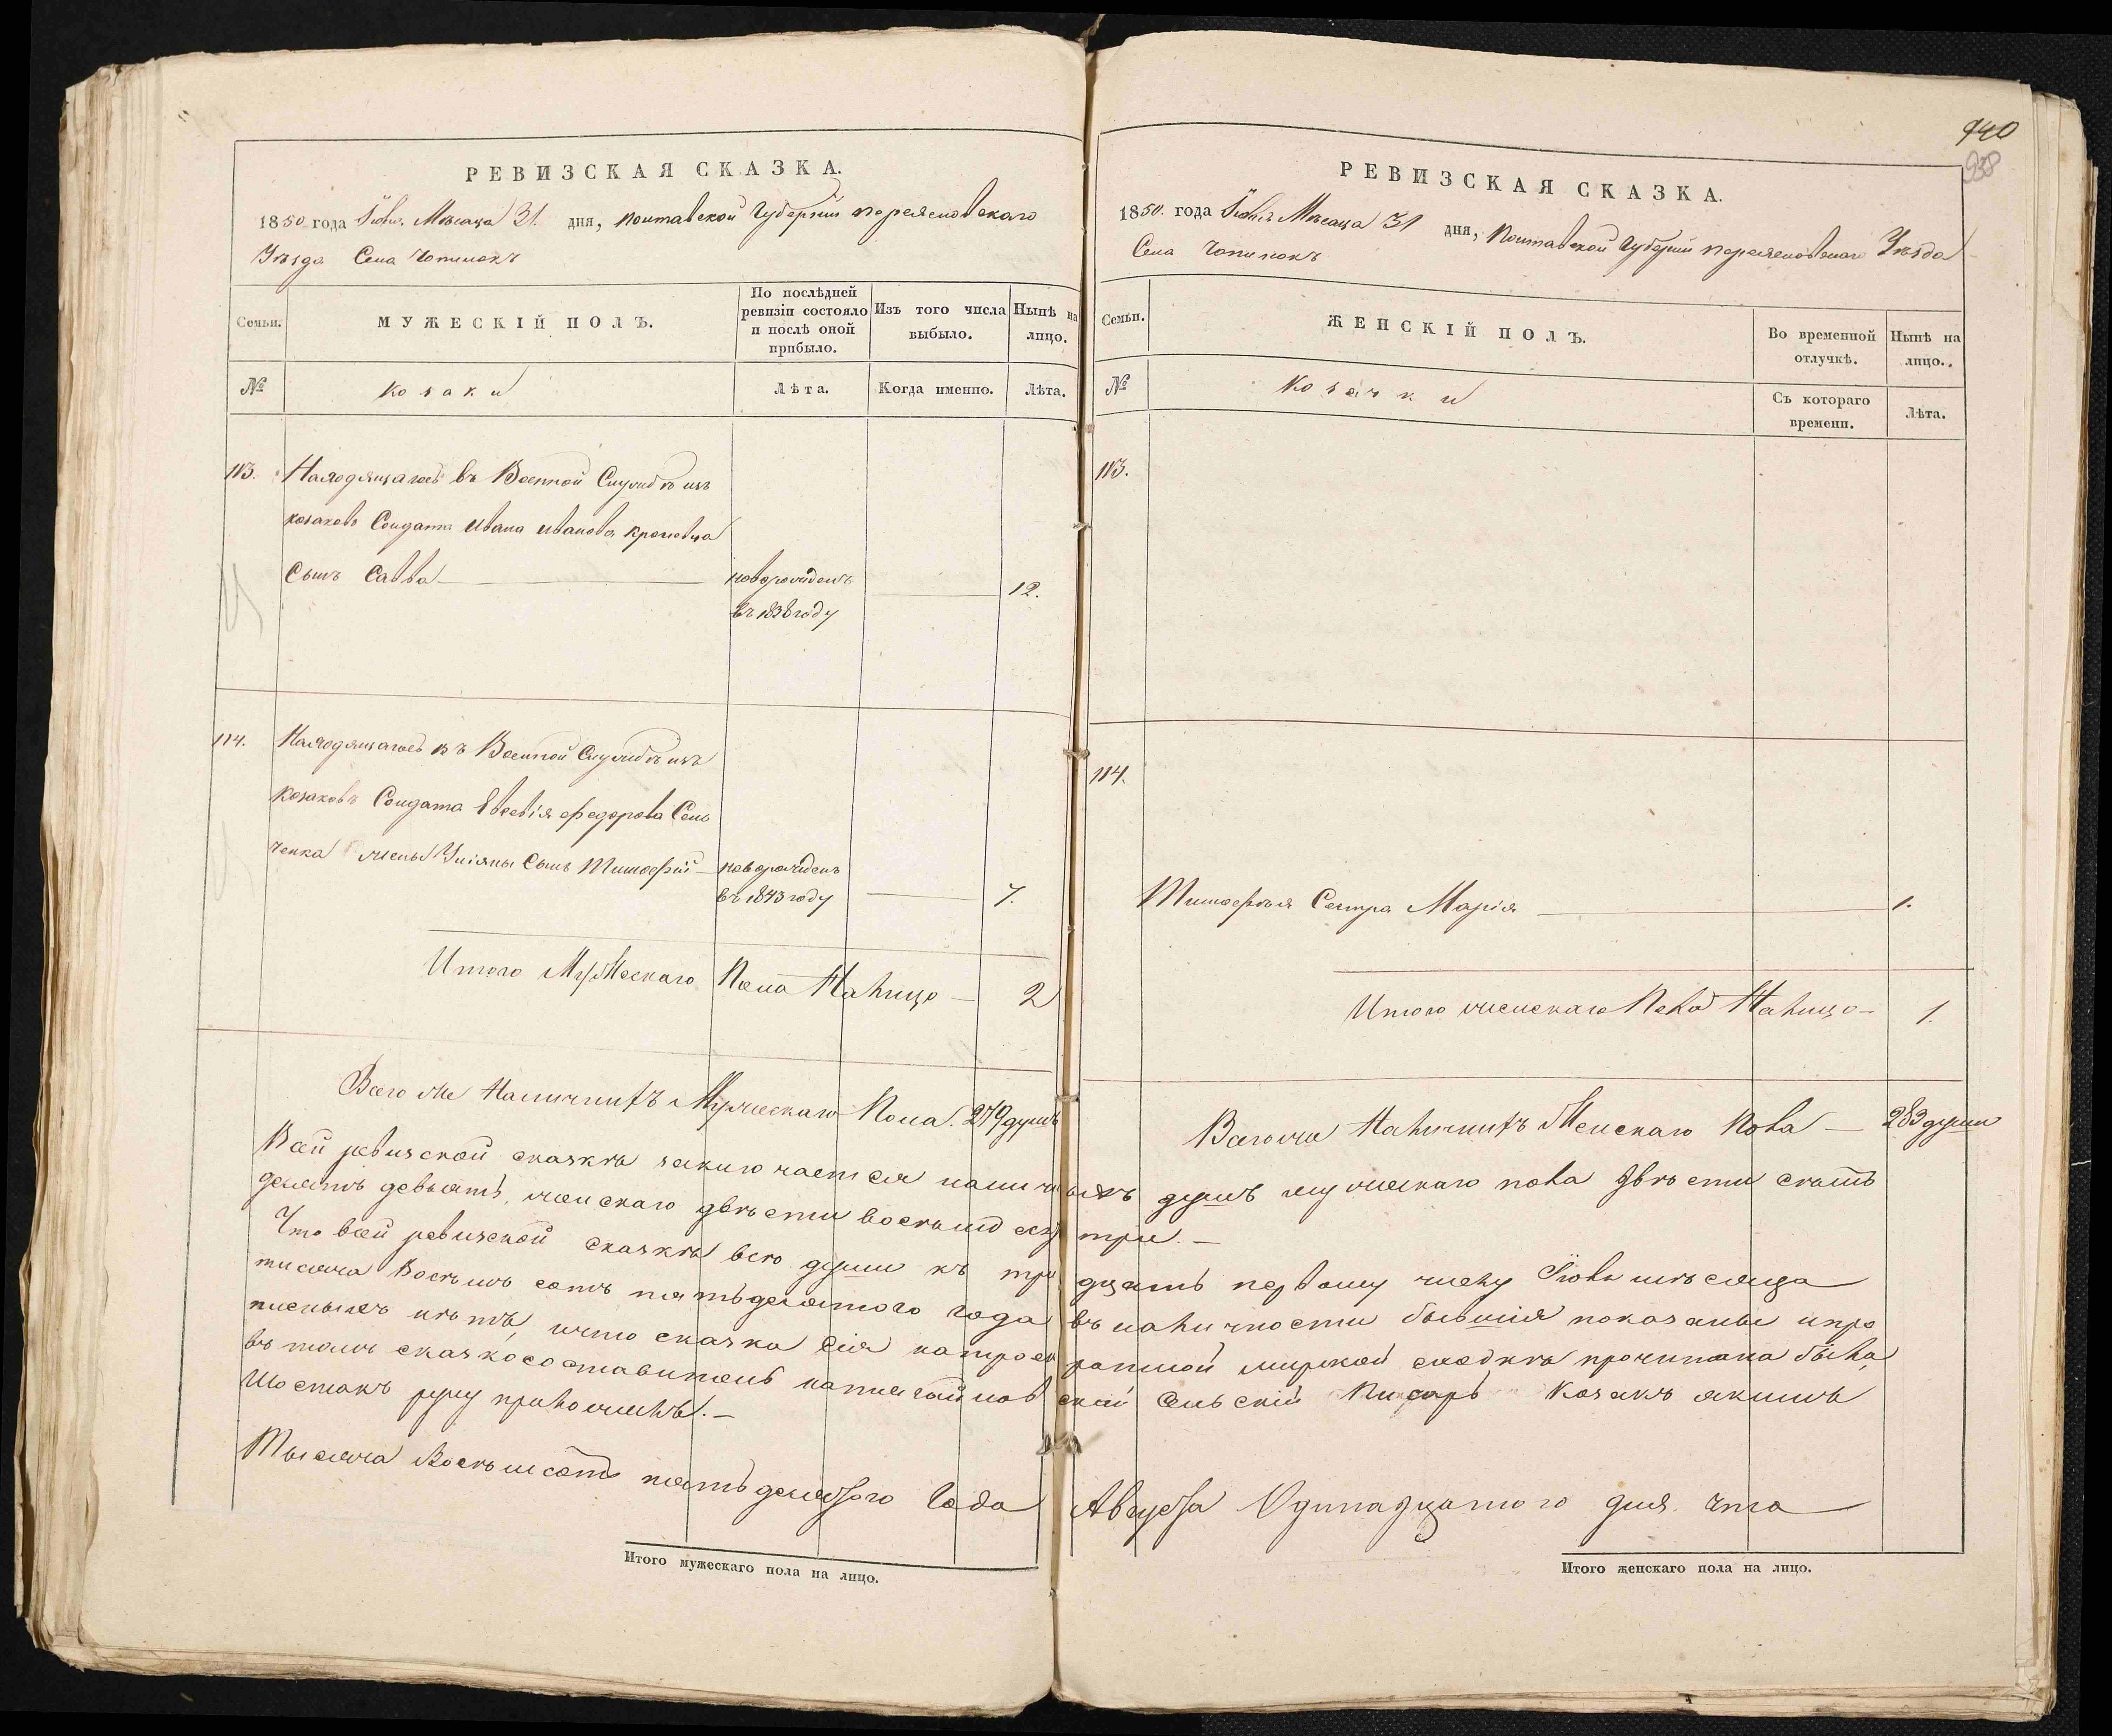 РЕВИЗСКАЯ СКАЗКА.
1850 года Іюля Мѣсяца 31. дня, Полтавской Губерніи Переясловскаго
Уѣзда Села Чопилокъ
Семьи.
МУЖЕСКІЙ ПОЛЪ.
По послѣдней ревизіи состояло и послѣ оной прибыло.
Изъ того числа выбыло.
Нынѣ на лицо.
№
Козаки
Лѣта.
Когда именно.
Лѣта.
113. Находящагось въ Военной Службѣ изъ
козаковъ Солдата Ивана Иванова
Сынъ Савва новорожденъ 12.
въ 1838 году
114. Находящагось въ Военной Службѣ изъ
Козаковъ Солдата Евсевія Федорова Сень
ченка жены Уліяны Сынъ Тимофій новорожденъ
въ 1843 году 7.
Итого Мужескаго Пола Налицо 2
Всего же Наличнихъ Мужескаго Пола. 279 душъ
РЕВИЗСКАЯ СКАЗКА.
440
938
1850. года Іюля Мѣсяца 31 дня, Полтавской Губерніи Переясловскаго Уѣзда
Села Чопилокъ
Семьи.
ЖЕНСКІЙ ПОЛЪ.
Во временной отлучкѣ.
Нынѣ на лицо.
№
Козачки
Съ котораго времени.
Лѣта.
113.
114.
Тимофѣя Сестра Марія 1.
Итого женскаго Пола Налицо 1.
Всего же Наличнихъ Женскаго Пола 283 души
Всей ревизской сказкѣ заключается наличныхъ душъ мужескаго пола двѣсти семь
десятъ девять, женскаго двѣсти восемьдесятъ три.
Что всей ревизской сказкѣ всѣ души къ тридцать первому числу Іюля мѣсяца
тисяча Восемь сотъ пятьдесятого года въ наличности бывшія показаны и про
писныхъ нѣтъ, и что сказка сія на мирской сходкѣ прочитана была,
въ томъ сказкосоставитель Сельскій Писарь Козакъ Якимъ
Шостакъ руку приложилъ.
Тысяча Восемьсотъ пятьдесятого Года Августа Одинадцатого дня что
Итого мужескаго пола на лицо.
Итого женскаго пола на лицо.